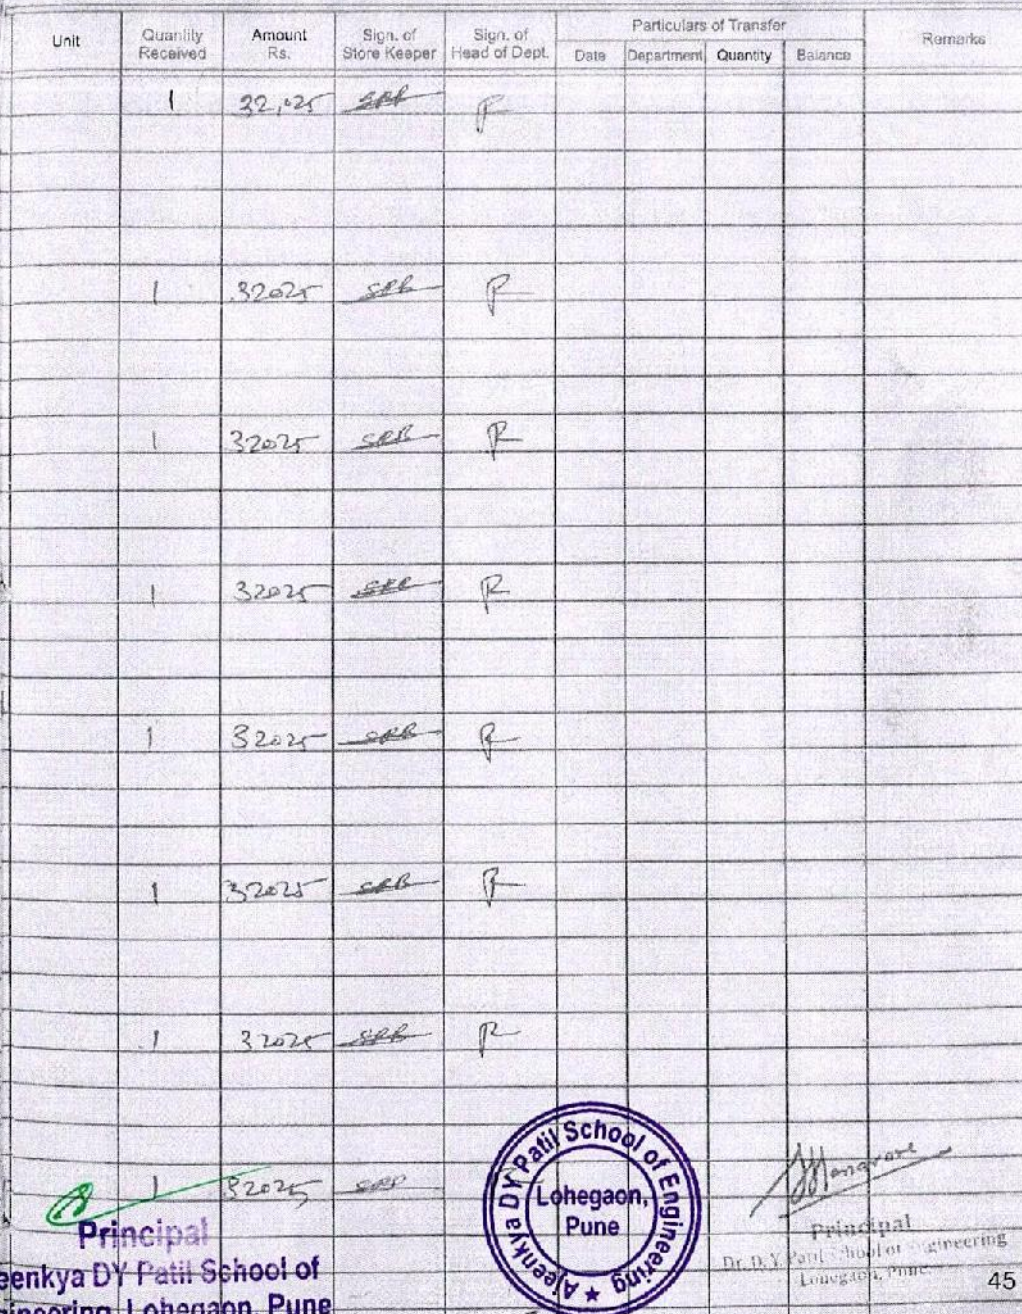 Unit Quantity Received Amount Rs. Sign. of Store Keeper Sign. of Head of Dept. Particulars of Transfer Remarks
Date Department Quantity Balance
1 32,025 SRB R
1 32025 SRB R
1 32025 SRB R
1 32025 SRB R
1 32025 SRB R
1 32025 SRB R
1 32025 SRB R
1 32025 SRB
Principal
eenkya DY Patil School of
gineering, Lohegaon, Pune
Ajeenkya DY Patil School of Engineering
Lohegaon,
Pune
Principal
Dr. D. Y. Patil School of Engineering
Lohegaon, Pune.
45